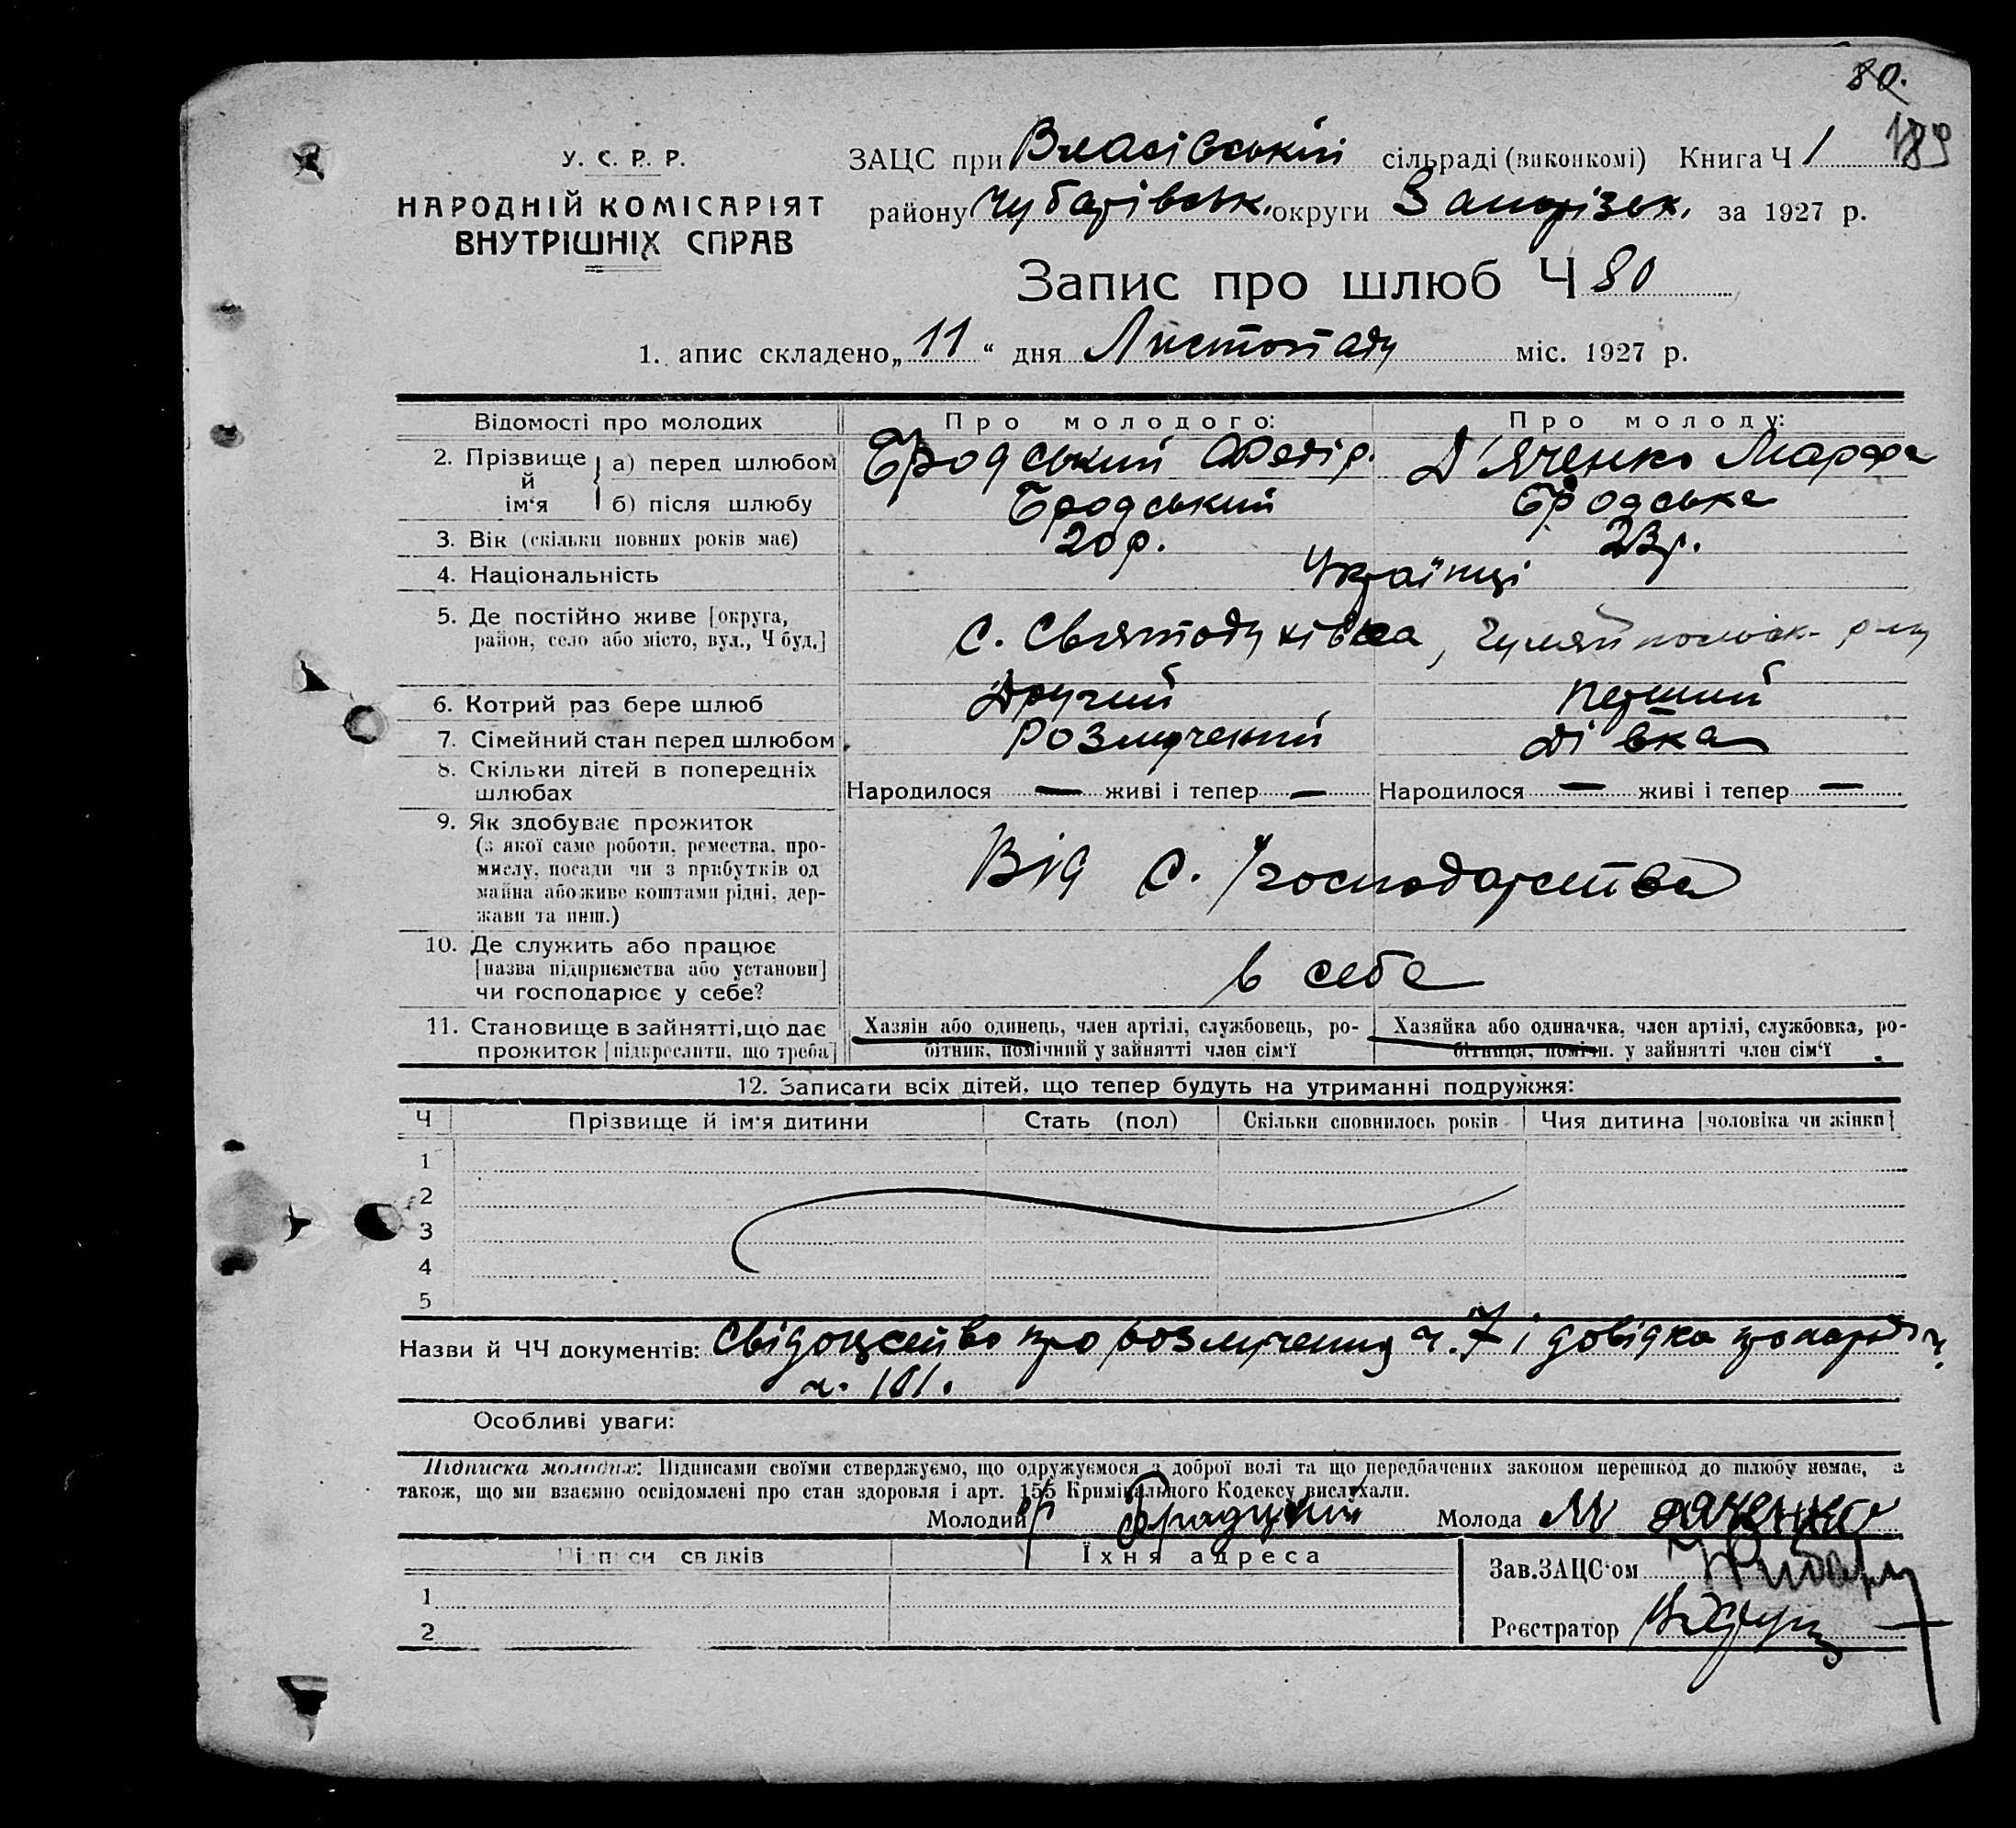 80.
189
У. С. Р. Р.
НАРОДНІЙ КОМІСАРІЯТ
ВНУТРІШНІХ СПРАВ
ЗАЦС при Власівській сільраді (виконкомі) Книга Ч 1
району Чубарівськ. округи Запорізьк. за 1927 р.
Запис про шлюб Ч 80
1. апис складено „11“ дня Листопаду міс. 1927 р.
Відомості про молодих Про молодого: Про молоду:
2. Прізвище й ім‘я а) перед шлюбом Бродський Федір. Д'яченко Марфа
б) після шлюбу Бродський Бродська
3. Вік (скільки повних років має) 20 р. 23 р.
4. Національність Українці
5. Де постійно живе [округа,
район, село або місто, вул., Ч буд.] с. Святодухівка, Гуляйпольськ. р-ну
6. Котрий раз бере шлюб Другий перший
7. Сімейний стан перед шлюбом Розлучений дівка
8. Скільки дітей в попередніх
шлюбах Народилося — живі і тепер — Народилося — живі і тепер —
9. Як здобуває прожиток
(з якої саме роботи, ремества, про-
мислу, посади чи з прибутків од
майна або живе коштами рідні, дер-
жави та инш.) Від с. господарства
10. Де служить або працює
[назва підприємства або установи]
чи господарює у себе? в себе
11. Становище в зайнятті, що дає
прожиток [підкреслити, що треба]
Хазяїн або одинець, член артілі, службовець, ро-
бітник, помічний у зайнятті член сім‘ї
Хазяйка або одиначка, член артілі, службовка, ро-
бітниця, помічн. у зайнятті член сім‘ї
12. Записати всіх дітей, що тепер будуть на утриманні подружжя:
Ч Прізвище й ім‘я дитини Стать (пол) Скільки сповнилось років Чия дитина [чоловіка чи жінки]
1
2
3
4
5
Назви й ЧЧ документів: Свідоцство про розлучення ч. 7 і довідка про
ч. 101.
Особливі уваги:
Підписка молодих: Підписами своїми стверджуємо, що одружуємося з доброї волі та що передбачених законом перешкод до шлюбу немає, а
також, що ми взаємно освідомлені про стан здоровля і арт. 155 Кримінального Кодексу вислухали.
Молодий Молода М Дяченко
Підписи свідків Їхня адреса
Зав.ЗАЦС‘ом
1
Реєстратор
2